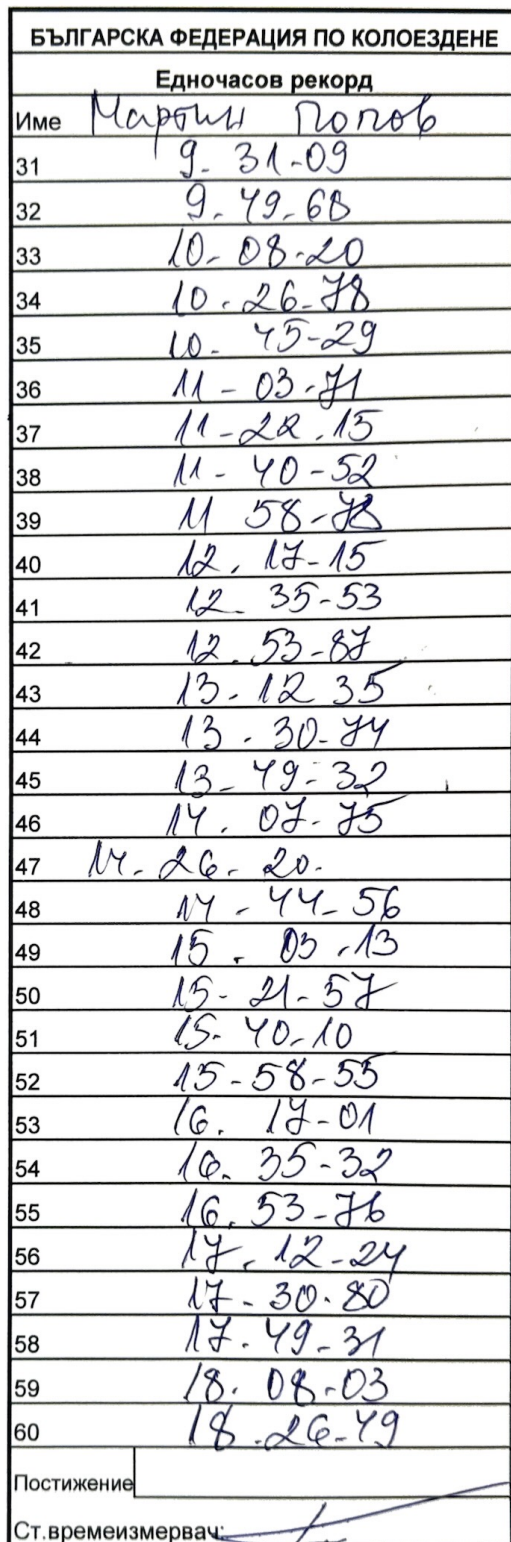 БЪЛГАРСКА ФЕДЕРАЦИЯ ПО КОЛОЕЗДЕНЕ
Едночасов рекорд
Име Мартин Попов
31 9-31-09
32 9-49-68
33 10-08-20
34 10-26-78
35 10-45-29
36 11-03-71
37 11-22-15
38 11-40-52
39 11 58-78
40 12.17-15
41 12.35-53
42 12.53-87
43 13-12 35
44 13.30-74
45 13-49-32
46 14.07-75
47 14-26-20.
48 14-44-56
49 15.03.13
50 15-21-57
51 15-40-10
52 15-58-55
53 16.17-01
54 16.35-32
55 16.53-76
56 17.12-24
57 17-30-80
58 17.49-31
59 18.08-03
60 18.26-49
Постижение
Ст.времеизмервач: